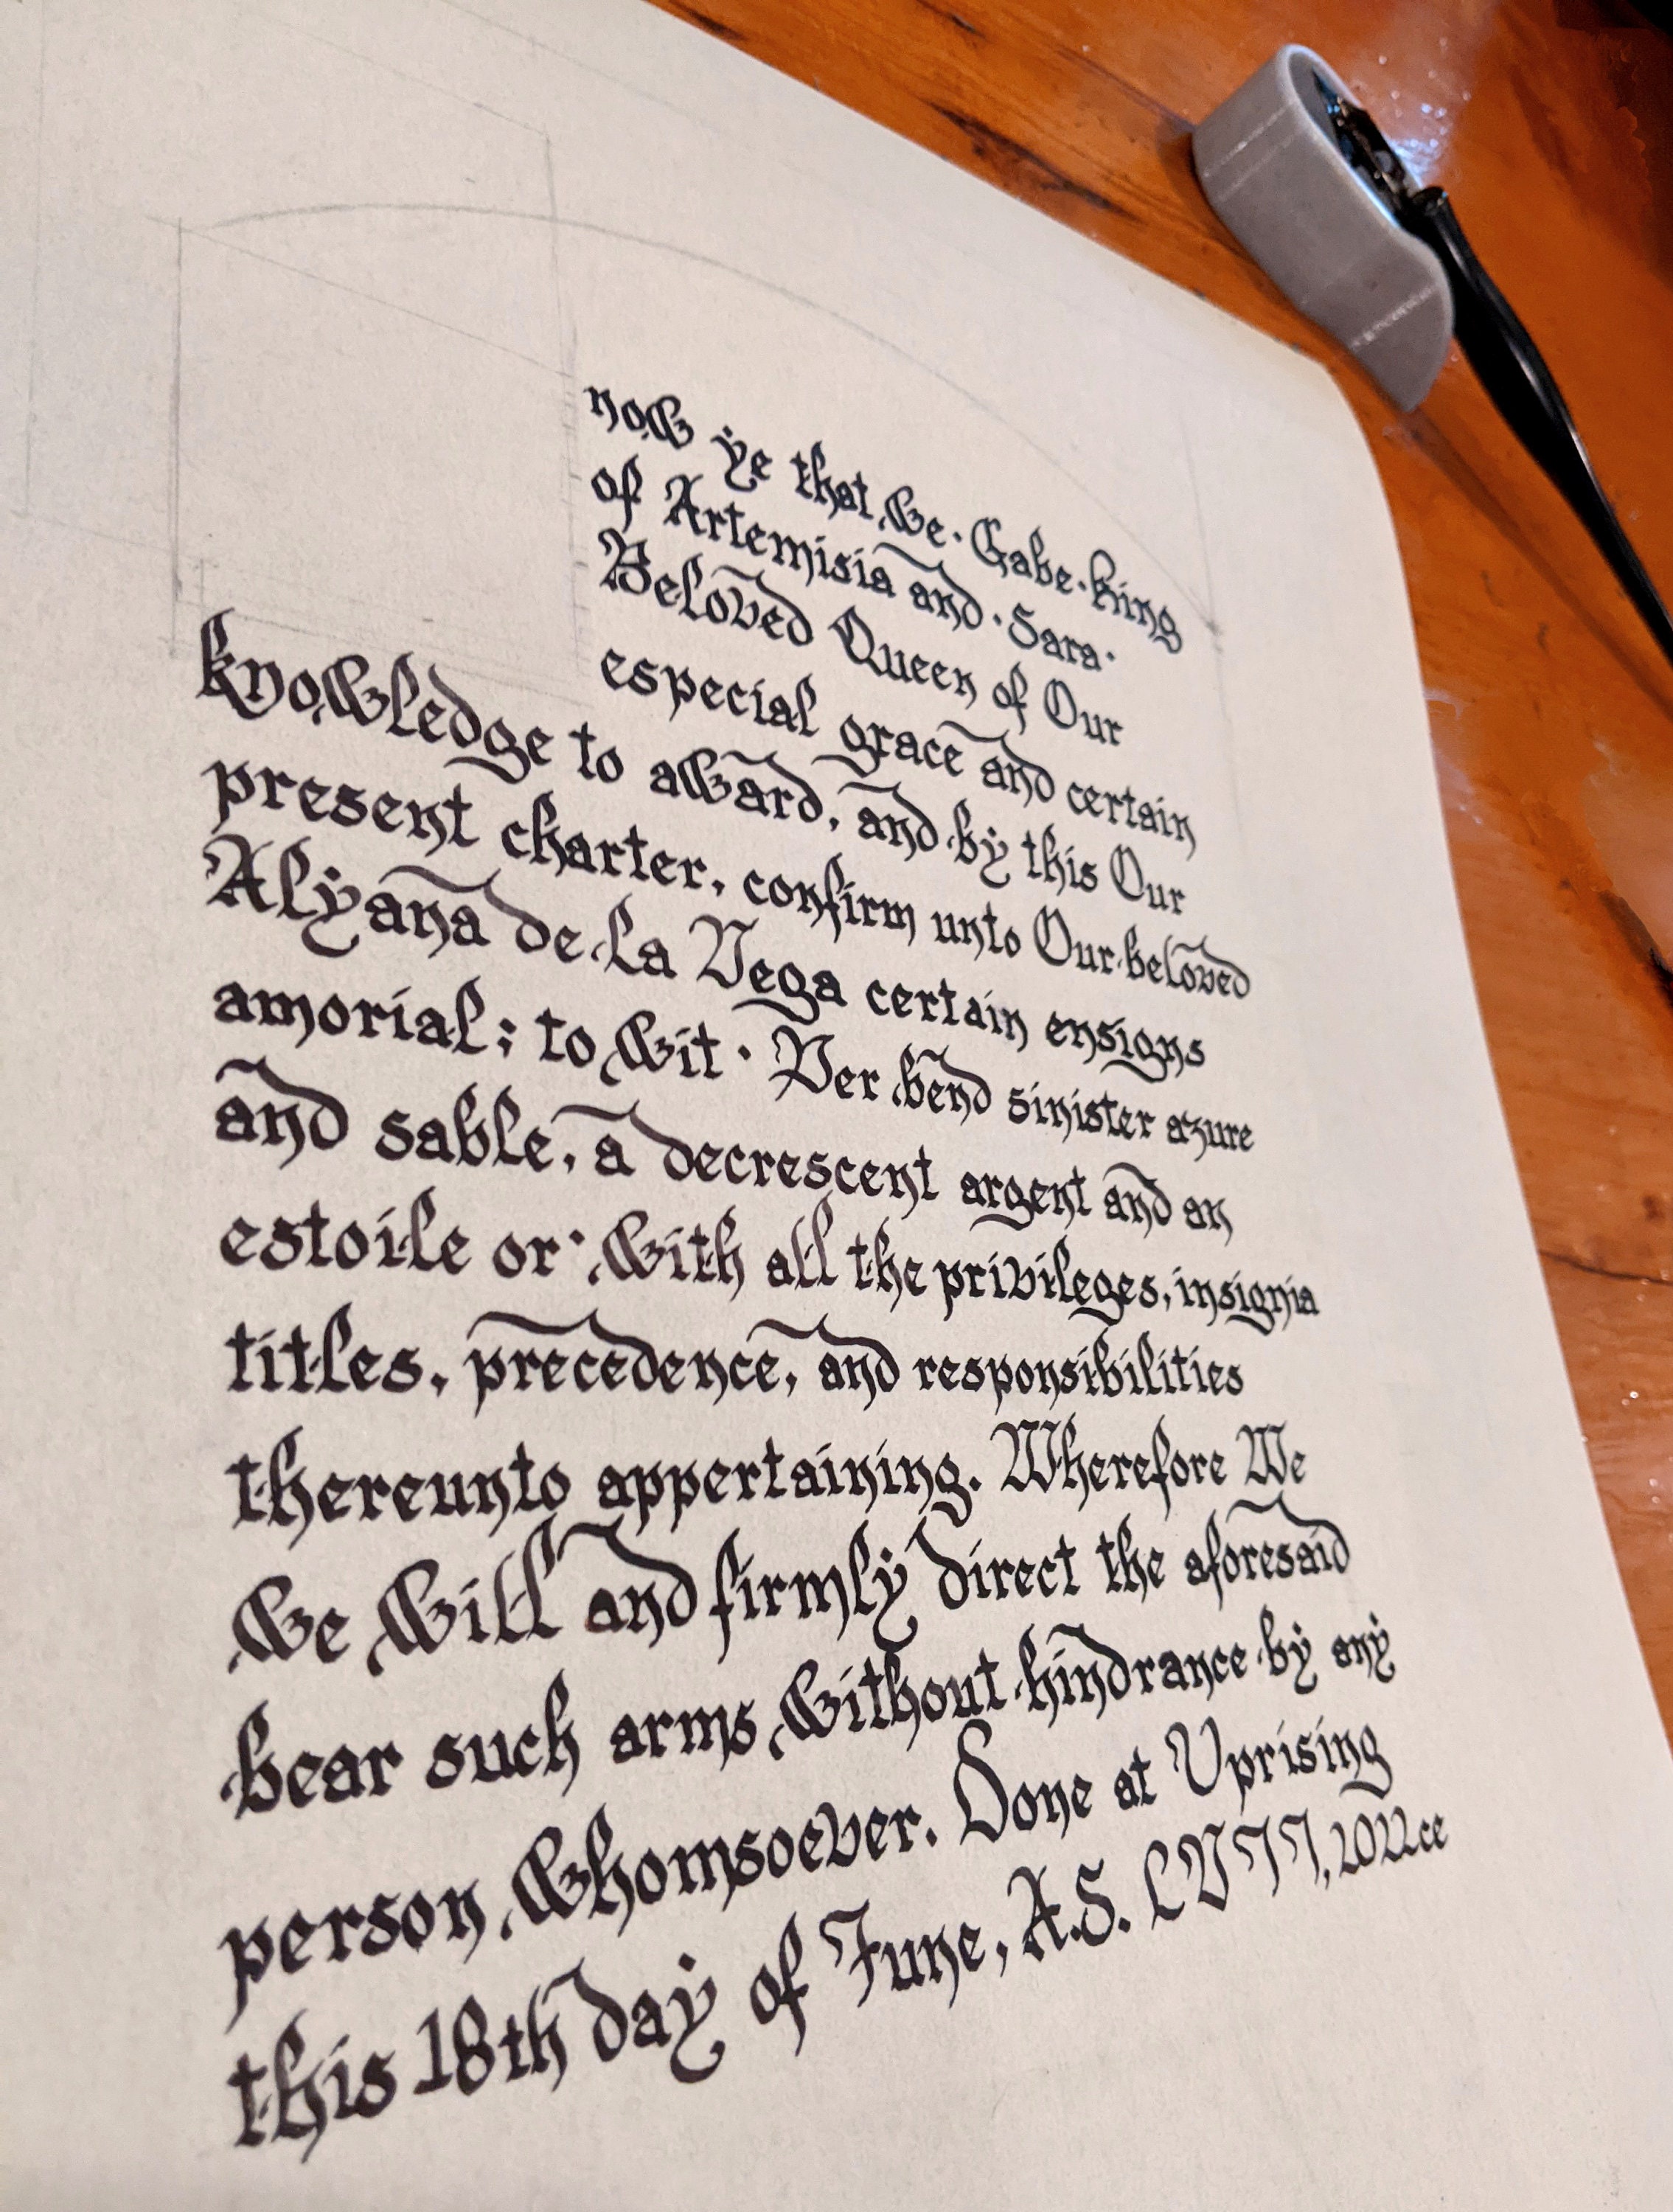 now ye that we · Gabe · King
of Artemisia and · Sara ·
Beloved Queen of Our
especial grace and certain
knowledge to award, and by this Our
present charter, confirm unto Our beloved
Alyana de la Vega certain ensigns
amorial; to wit · Per bend sinister azure
and sable, a decrescent argent and an
estoile or · with all the privileges, insignia
titles, precedence, and responsibilities
thereunto appertaining. Wherefore We
we will and firmly direct the aforesaid
bear such arms without hindrance by any
person whomsoever. Done at Uprising
this 18th day of June, A.S. LVII, 2022ce